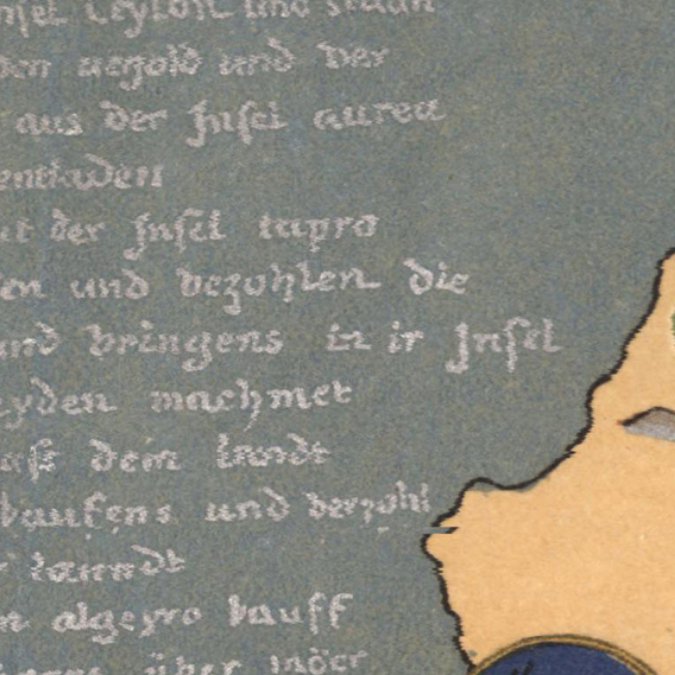 nsel Ceylon und
den uegold und der
aus der Jnsel aurea
entladen
der Jnsel tapro
en und bezohlen die
und bringens in ir Jnsel
eyden machmet
dem landt
kaufens und verzohl
lanndt
algeyro kauff
über möer